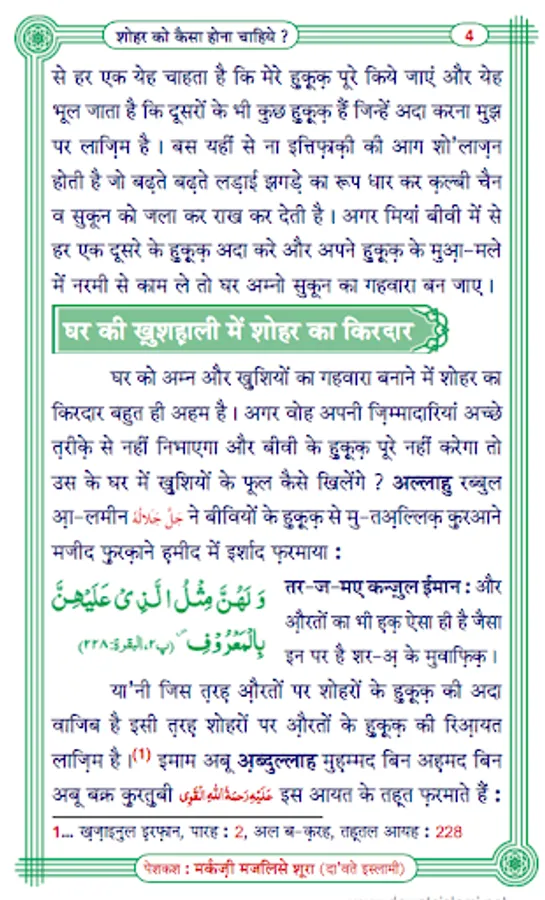 शोहर को कैसा होना चाहिये ?
4
से हर एक येह चाहता है कि मेरे हुक़ूक़ पूरे किये जाएं और येह
भूल जाता है कि दूसरों के भी कुछ हुक़ूक़ हैं जिन्हें अदा करना मुझ
पर लाज़िम है । बस यहीं से ना इत्तिफ़ाक़ी की आग शो'लाज़न
होती है जो बढ़ते बढ़ते लड़ाई झगड़े का रूप धार कर क़ल्बी चैन
व सुकून को जला कर राख कर देती है । अगर मियां बीवी में से
हर एक दूसरे के हुक़ूक़ अदा करे और अपने हुक़ूक़ के मुआ़-मले
में नरमी से काम ले तो घर अम्नो सुकून का गहवारा बन जाए ।
घर की ख़ुशह़ाली में शोहर का किरदार
घर को अम्न और ख़ुशियों का गहवारा बनाने में शोहर का
किरदार बहुत ही अहम है । अगर वोह अपनी ज़िम्मादारियां अच्छे
त़रीक़े से नहीं निभाएगा और बीवी के हुक़ूक़ पूरे नहीं करेगा तो
उस के घर में ख़ुशियों के फूल कैसे खिलेंगे ? अल्लाहु रब्बुल
आ़-लमीन جَلَّ جَلَالُهٗ ने बीवियों के हुक़ूक़ से मु-तअ़ल्लिक़ क़ुरआने
मजीद फ़ुरक़ाने ह़मीद में इर्शाद फ़रमाया :
وَلَهُنَّ مِثْلُ الَّذِیْ عَلَیْهِنَّ
بِالْمَعْرُوْفِ ۪ (پ۲، البقرۃ: ۲۲۸)
तर-ज-मए कन्ज़ुल ईमान : और
औ़रतों का भी ह़क़ ऐसा ही है जैसा
इन पर है शर-अ़ के मुवाफ़िक़ ।
या'नी जिस त़रह़ औ़रतों पर शोहरों के हुक़ूक़ की अदा
वाजिब है इसी त़रह़ शोहरों पर औ़रतों के हुक़ूक़ की रिआ़यत
लाज़िम है ।(1) इमाम अबू अ़ब्दुल्लाह मुह़म्मद बिन अह़मद बिन
अबू बक्र क़ुरत़ुबी عَلَیْهِ رَحْمَةُ اللّٰهِ الْقَوِی इस आयत के तह़त फ़रमाते हैं :
1... ख़ज़ाइनुल इरफ़ान, पारह : 2, अल ब-क़रह, तह़तल आयह : 228
पेशकश : मर्कज़ी मजलिसे शूरा (दा'वते इस्लामी)